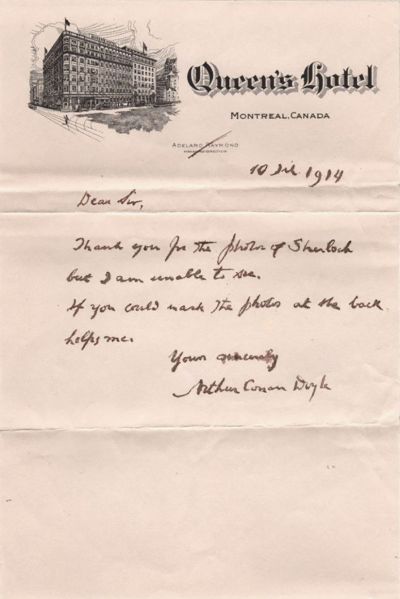 Queen's Hotel
MONTREAL, CANADA
ADELARD RAYMOND
10 1914
Dear Sir,
Thank you for the photos of Sherlock
but I am unable to see.
If you could mark the photos at the back
helps me.
Yours sincerely
Arthur Conan Doyle